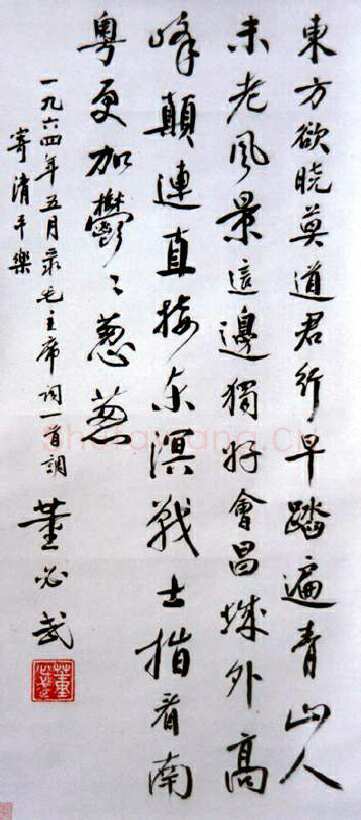 東方欲曉莫道君行早踏遍青山人
未老風景這邊獨好會昌城外高
峰顛連直接東溟戰士指看南
粵更加鬱〻蔥蔥
一九六四年五月录毛主席詞一首調
寄清平樂
董必武
董必武